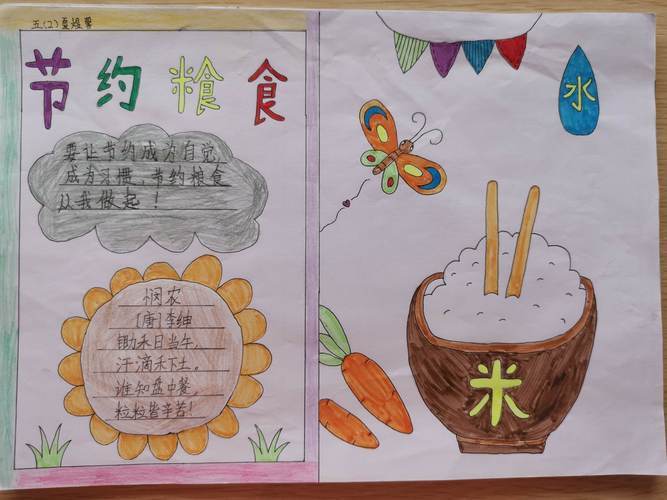 五(2)夏煜馨
节约粮食
水
要让节约成为自觉,
成为习惯,节约粮食
从我做起!
悯农
[唐]李绅
锄禾日当午,
汗滴禾下土。
谁知盘中餐,
粒粒皆辛苦!
米